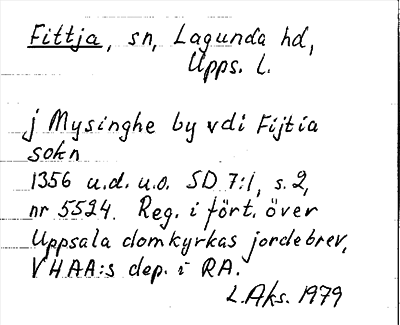 Fittja, sn, Lagunda hd,
Upps. l.
j Mysinghe by vdi Fijtia
sokn
1356 u.d. u.o. SD 7:1, s. 2,
nr 5524. Reg. i fört. över
Uppsala domkyrkas jordebrev,
VHAA:s dep. i RA.
L. Aks. 1979